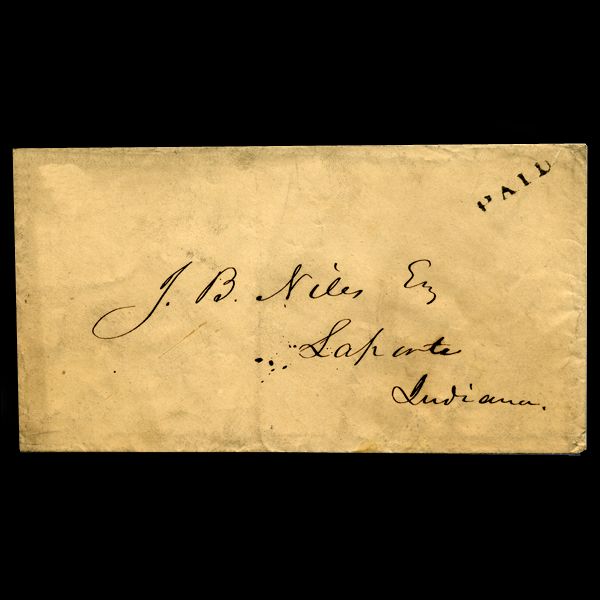 PAID
J. B. Niles Esq
Laporte
Indiana.